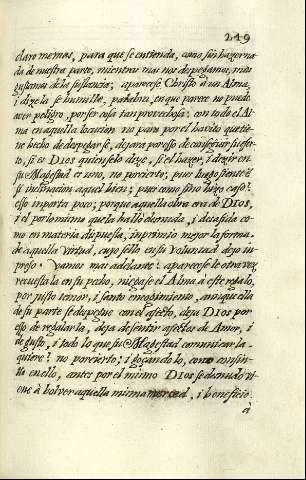 249
claro memas, para que se entienda, como sin hazer na
da de nuestra parte, mientras mas nos despegamos, mas
gustamos de la sustancia; aparecese Christo à un Alma,
i dizele se humille, palabra, en que parece no puede
aver peligro, por ser cosa tan provechosa: con todo el Al
ma en aquella locucion no para por el havito que tie
ne hecho de despegarse, dejara por eso de conseguir su efec
to, si es DIOS quien se lo dize, si el hazer, i dezir en
su Magestad es uno, no por cierto; pues luego siente
si inclinacion aquel bien; pues como si no hizo caso?
eso inporta poco; porque aquella obra era de DIOS,
i el por lo mismo que la halló desnuda, i desasida co
mo en materia dispuesta, inprimio mejor la forma
de aquella virtud, cuyo sello en su Voluntad dejo in
preso. Vamos mas adelante: aparecesele otra vez
recuesta la en su pecho, niegase el Alma à este regalo,
por justo temor, i santo encogimiento, aunque ella
de su parte se despegue con el afecto, deja DIOS por
eso de regalarla, deja de sentir afectos de Amor, i
de gusto, i todo lo que su Magestad comunicar la
quiere? no por cierto; i gozandolo, como consin
tla en ello, antes por el mismo DIOS se desnudo vi
ene à bolver aquella misma merced, i beneficio
à